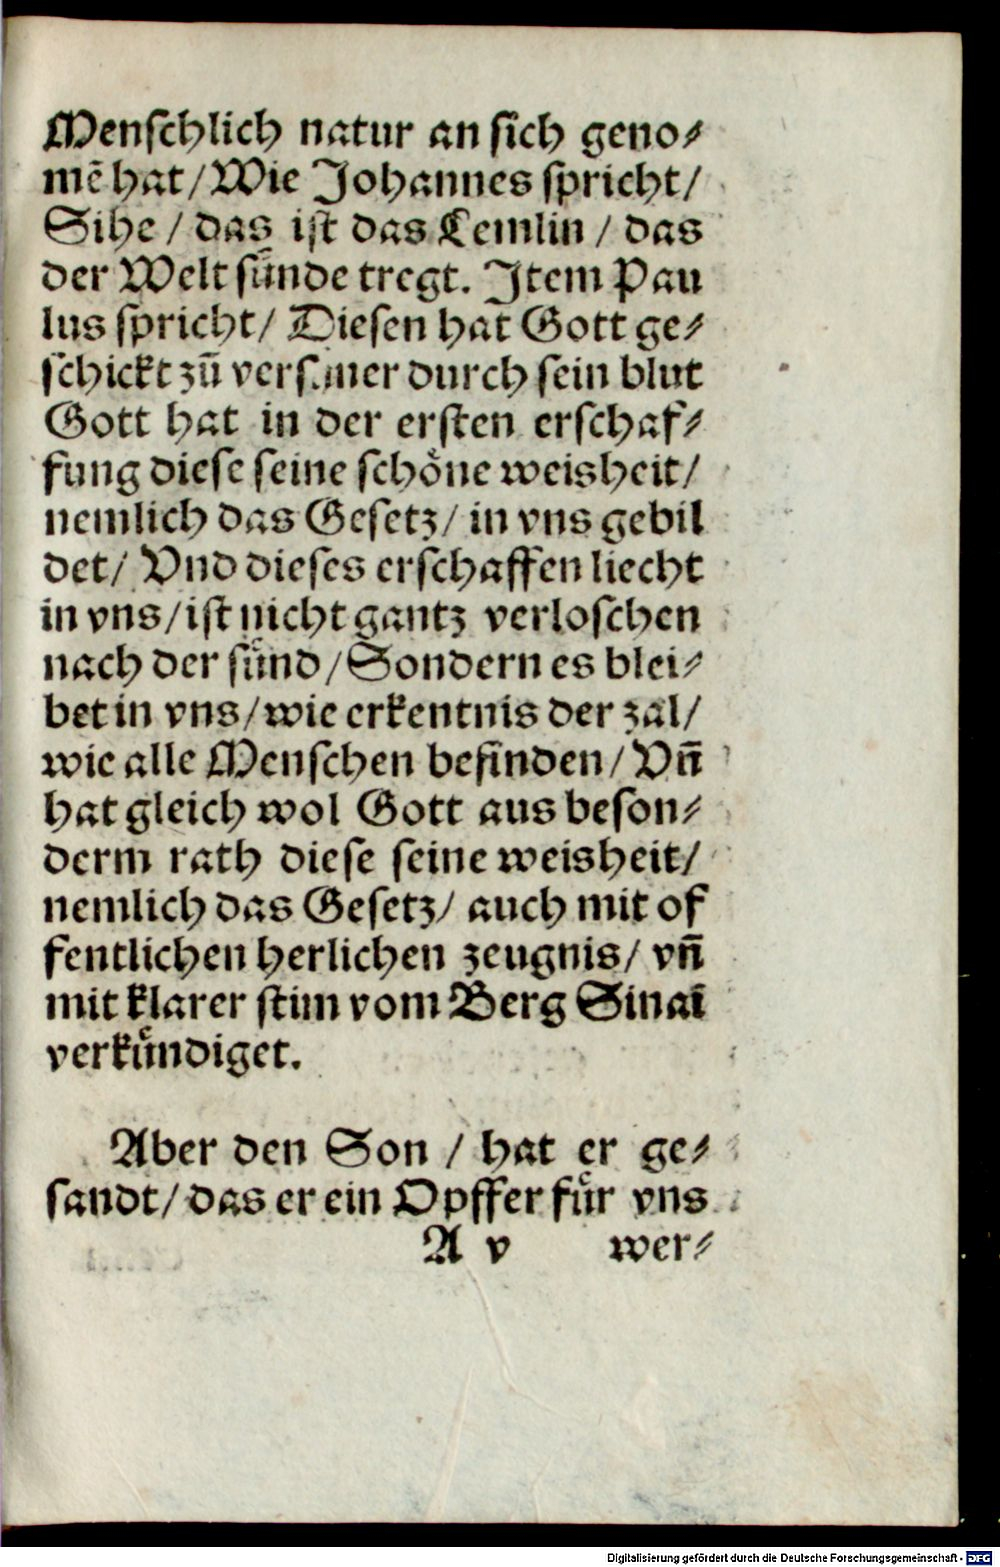 Menſchlich natur an ſich geno⸗
mē hat/ Wie Johannes ſpricht/
Sihe / das iſt das Lemlin / das
der Welt ſuͤnde tregt. Jtem Pau
lus ſpricht/ Dieſen hat Gott ge⸗
ſchickt zū durch ſein blut
Gott hat in der erſten erſchaf⸗
fung dieſe ſeine ſchoͤne weisheit/
nemlich das Geſetz/ in vns gebil
det/ Vnd dieſes erſchaffen liecht
in vns/ iſt nicht gantz verloſchen
nach der ſuͤnd/ Sondern es blei⸗
bet in vns/ wie erkentnis der zal/
wie alle Menſchen befinden/ Vn̄
hat gleich wol Gott aus beſon⸗
derm rath dieſe ſeine weisheit/
nemlich das Geſetz/ auch mit of
fentlichen herlichen zeugnis/ vn̄
mit klarer ſtim vom Berg Sinai
verkuͤndiget.
Aber den Son / hat er ge⸗
ſandt/ das er ein Opffer fuͤr vns
A v wer⸗
Digitalisierung gefördert durch die Deutsche Forschungsgemeinschaft - DFG